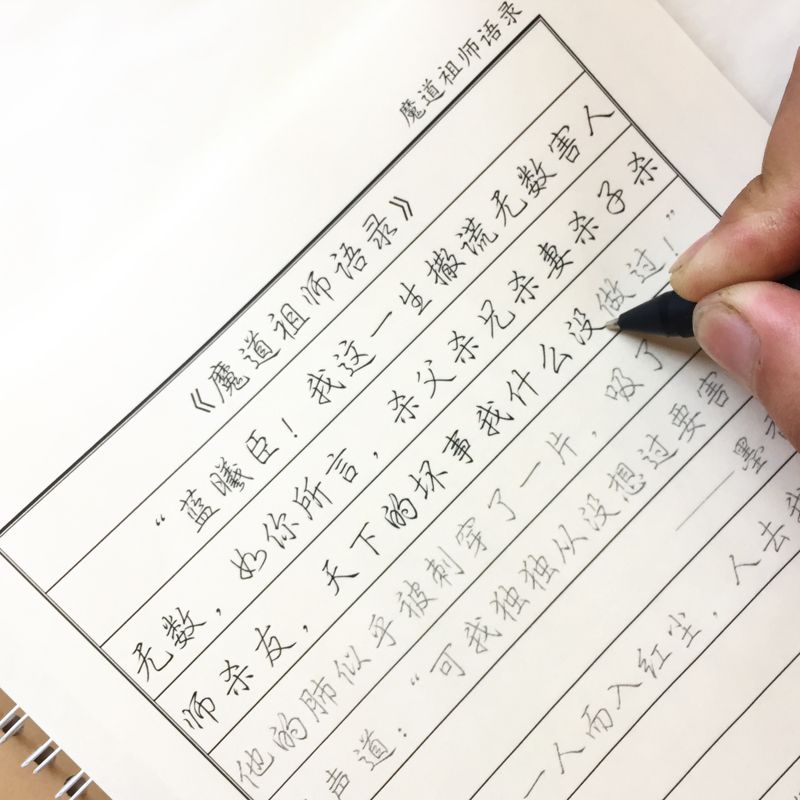 魔道祖师语录
《魔道祖师语录》
“蓝曦臣！我这一生撒谎无数害人
无数，如你所言，杀父杀兄杀妻杀子杀
师杀友，天下的坏事我什么没做过！”
他的肺似乎被刺穿了一片，吸了
声道：“可我独独从没想过要害
墨
一人而入红尘，人去我